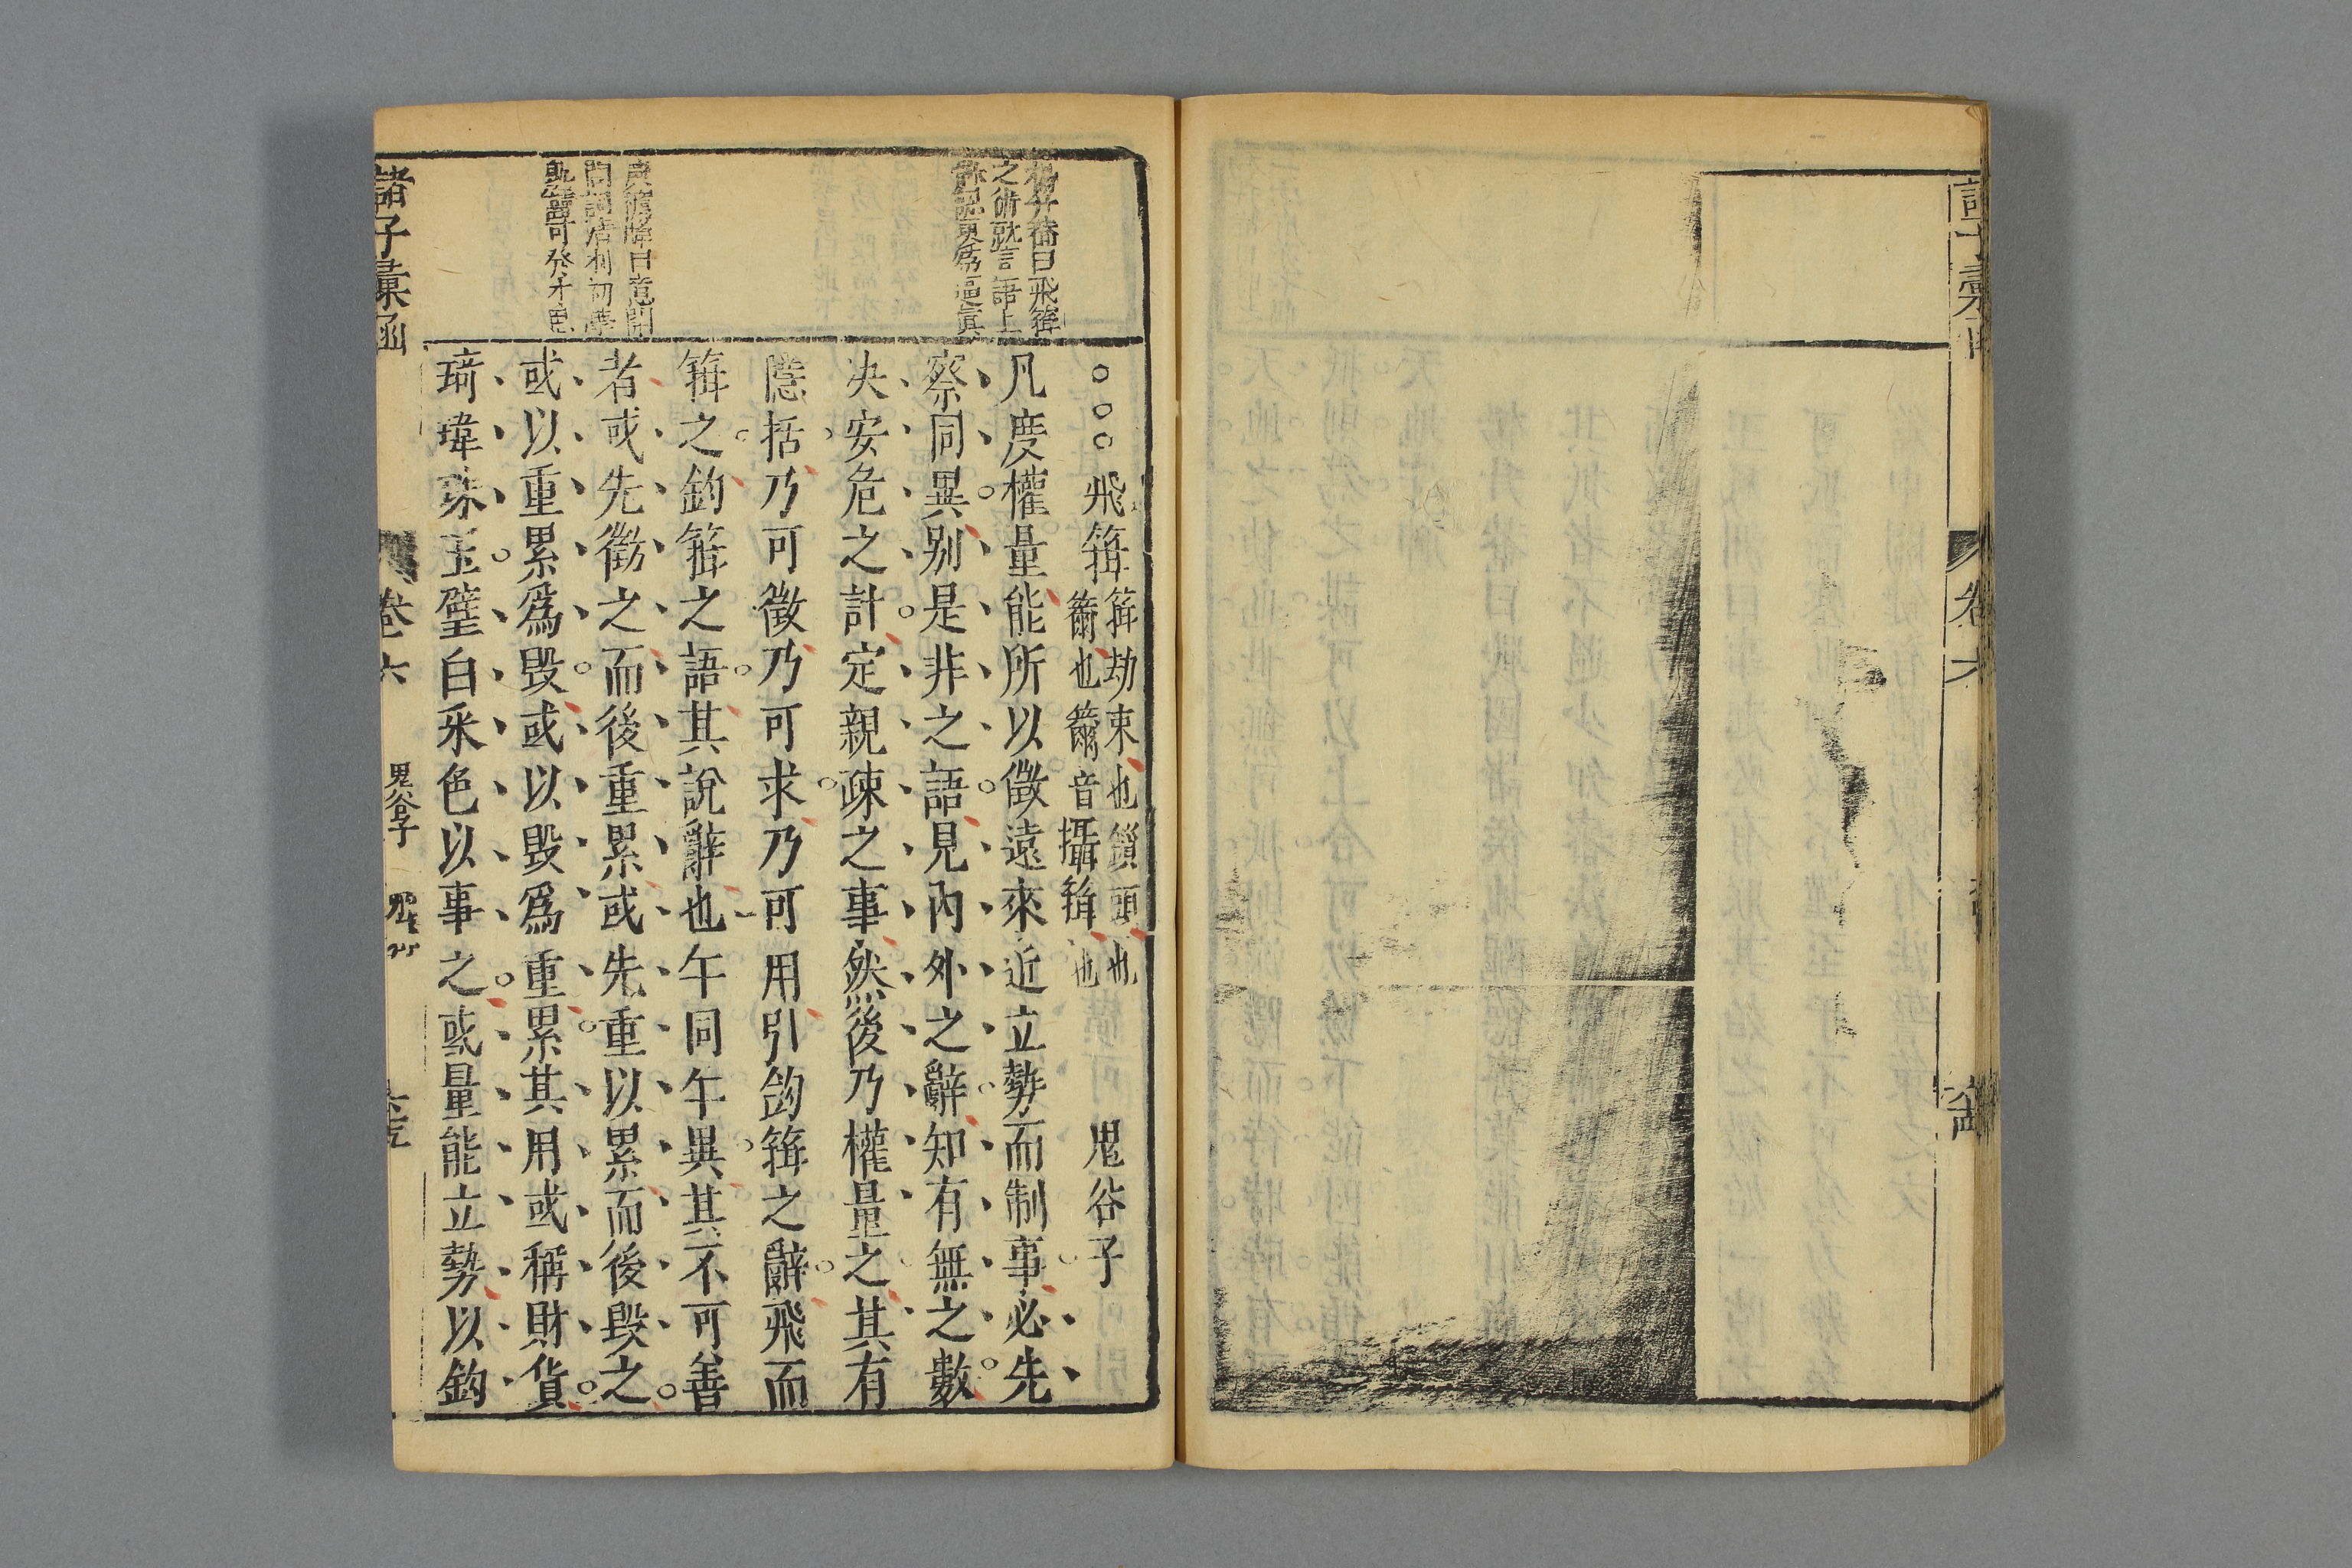 卷六
○○○飛箝箝劫束也鎖頭也籋也籋音攝箝也 鬼谷子
凡度權量能所以徵遠來近立勢而制事必先
察同異别是非之語見內外之辭知有無之數
決安危之計定親疎之事然後乃權量之其有
隱括乃可徵乃可求乃可用引鈎箝之辭飛而
箝之鈎箝之語其說辭也乍同乍異其不可善
者或先徵之而後重累或先重以累而後毀之
或以重累爲毀或以毀爲重累其用或稱財貨
琦瑋珠玉璧白采色以事之或量能立勢以鈎
曰飛箝
之術就言語上
諸子彙函
卷六
鬼谷子